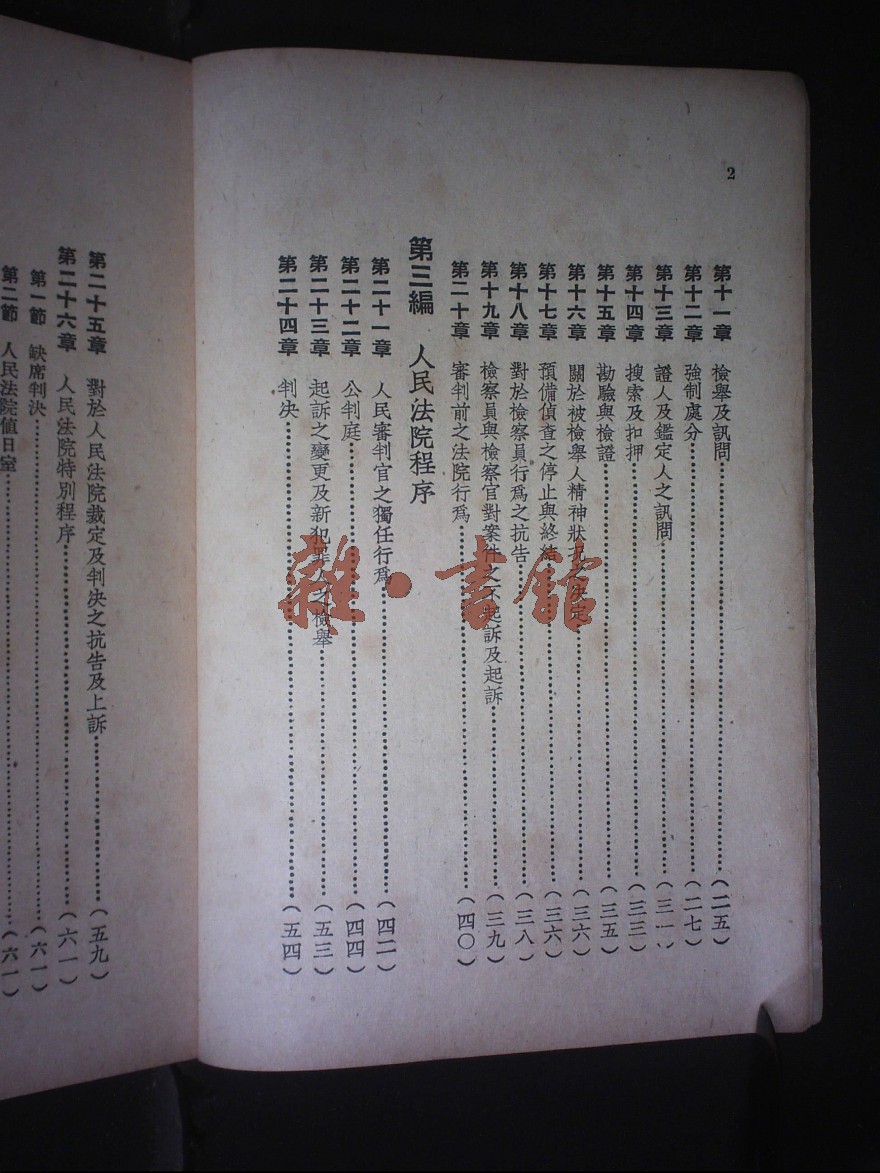 2
第十一章　檢舉及訊問……(二五)
第十二章　強制處分……(二七)
第十三章　證人及鑑定人之訊問……(三一)
第十四章　搜索及扣押……(三三)
第十五章　勘驗與檢證……(三五)
第十六章　關於被檢舉人精神狀況之決定……(三六)
第十七章　預備偵查之停止與終結……(三六)
第十八章　對於檢察員行爲之抗告……(三八)
第十九章　檢察員與檢察官對案件之不起訴及起訴……(三九)
第二十章　審判前之法院行爲……(四〇)
第三編　人民法院程序
第二十一章　人民審判官之獨任行爲……(四二)
第二十二章　公判庭……(四四)
第二十三章　起訴之變更及新犯罪人之檢舉……(五三)
第二十四章　判決……(五四)
第二十五章　對於人民法院裁定及判決之抗告及上訴……(五九)
第二十六章　人民法院特別程序……(六一)
第一節　缺席判決……(六一)
第二節　人民法院値日室……(六一)
雜·書館